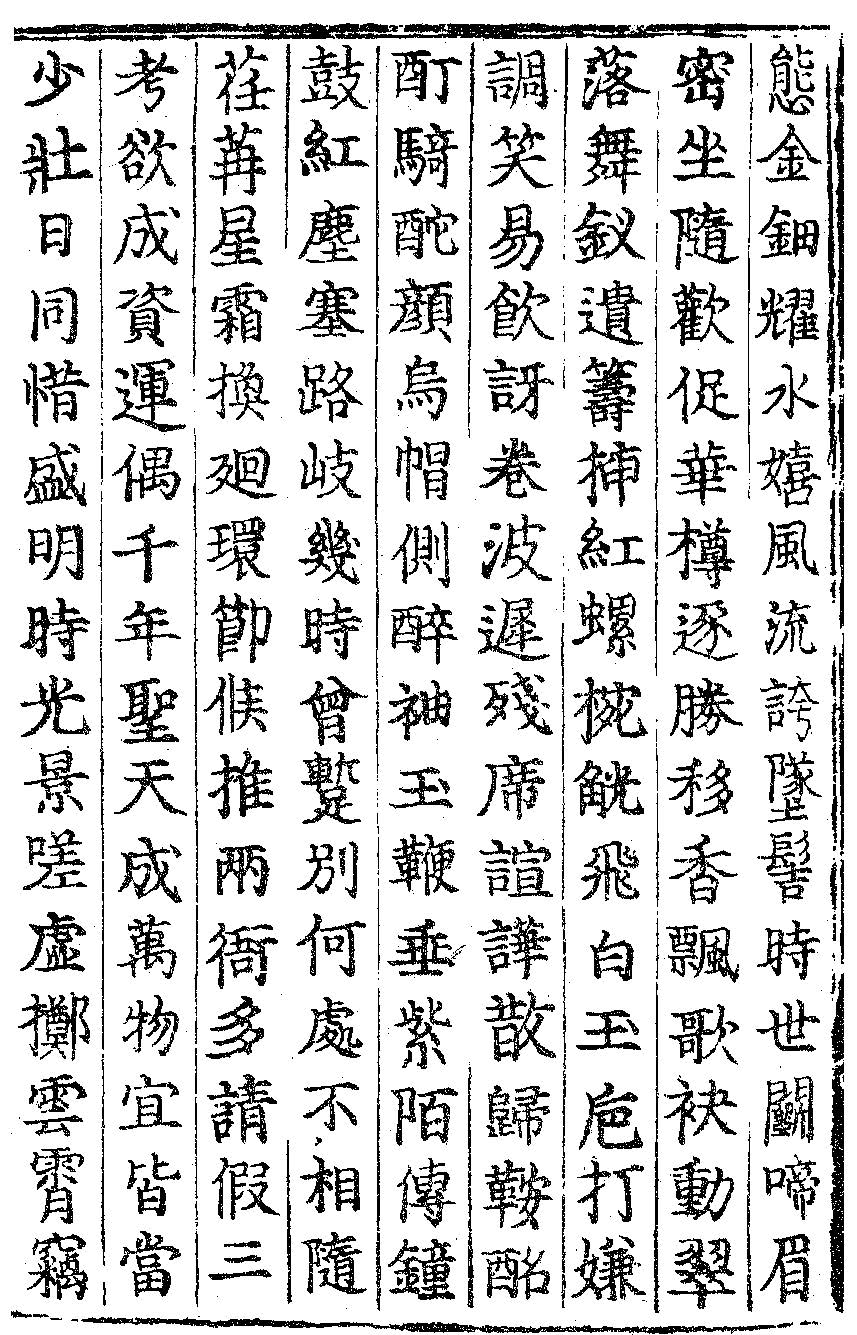 態金鈿耀水嬉風流誇墜髻時世鬭啼眉
密坐隨歡促華樽逐勝移香飄歌袂動翠
落舞釵遺籌揷紅螺椀觥飛白玉巵打嫌
調笑易飲訝卷波遲殘席諠譁散歸鞍酩
酊騎酡顔烏帽側醉袖玉鞭垂紫陌傳鐘
鼓紅塵塞路岐幾時曾蹔別何處不相隨
荏苒星霜換廻環節候推兩衙多請假三
考欲成資運偶千年聖天成萬物宜皆當
少壯日同惜盛明時光景嗟虛擲雲霄竊